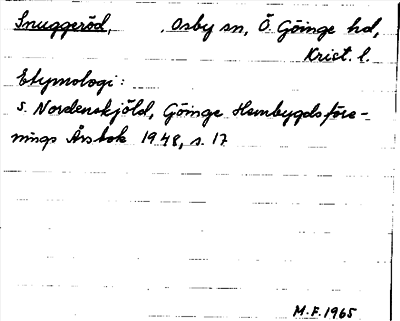 Snuggeröd, , Osby sn, Ö. Göinge hd,
Krist. l.
Etymologi:
s. Nordenskjöld, Göinge Hembygdsföre-
nings Årsbok 1948, s. 17
M.F. 1965